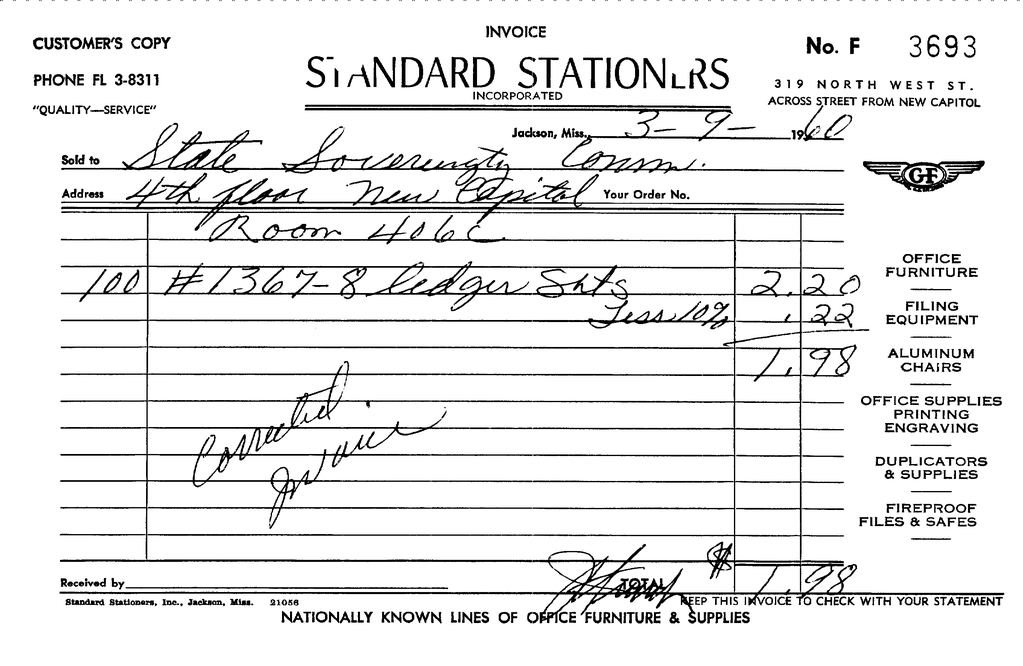 CUSTOMER'S COPY
INVOICE
No. F 3693
PHONE FL 3-8311
STANDARD STATIONERS
INCORPORATED
"QUALITY—SERVICE"
319 NORTH WEST ST.
ACROSS STREET FROM NEW CAPITOL
Jackson, Miss., 3-9- 1960
Sold to State Soverengty Comm.
Address 4th floor New Capitol Your Order No.
GF
Room 406C
100 #1367-8 ledger Shts 2.20
Less 10% .22
1.98
Corrected
Invoice
OFFICE
FURNITURE
FILING
EQUIPMENT
ALUMINUM
CHAIRS
OFFICE SUPPLIES
PRINTING
ENGRAVING
DUPLICATORS
& SUPPLIES
FIREPROOF
FILES & SAFES
Received by
TOTAL $ 1.98
Standard Stationers, Inc., Jackson, Miss. 21056
KEEP THIS INVOICE TO CHECK WITH YOUR STATEMENT
NATIONALLY KNOWN LINES OF OFFICE FURNITURE & SUPPLIES